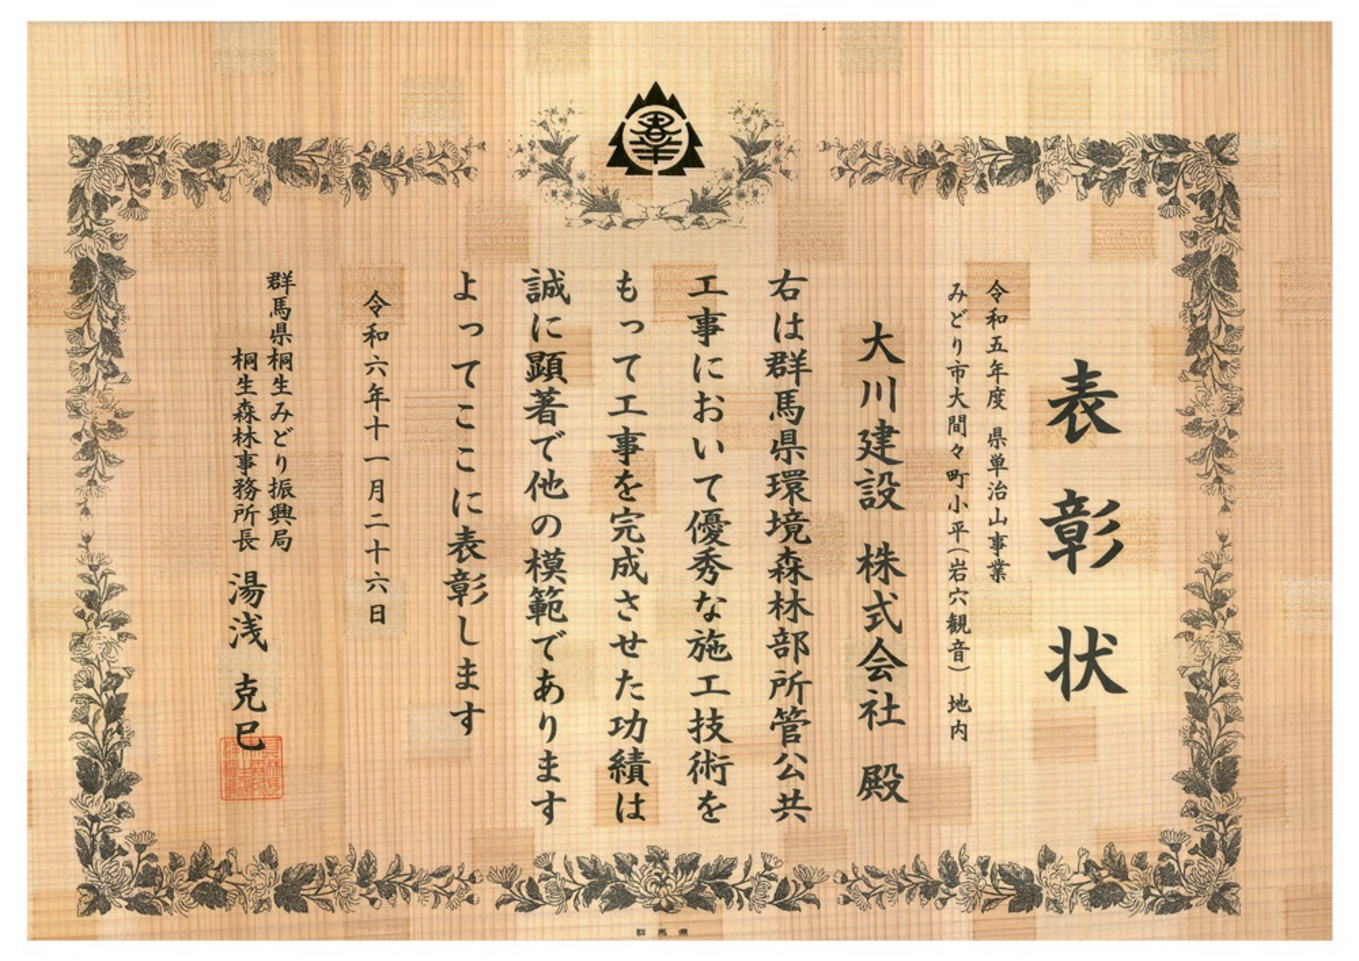 表彰状
令和五年度 県単治山事業
みどり市大間々町小平(岩穴観音) 地内
大川建設 株式会社 殿
右は群馬県環境森林部所管公共
工事において優秀な施工技術を
もって工事を完成させた功績は
誠に顕著で他の模範であります
よってここに表彰します
令和六年十一月二十六日
群馬県桐生みどり振興局
桐生森林事務所長 湯浅 克巳
群馬県